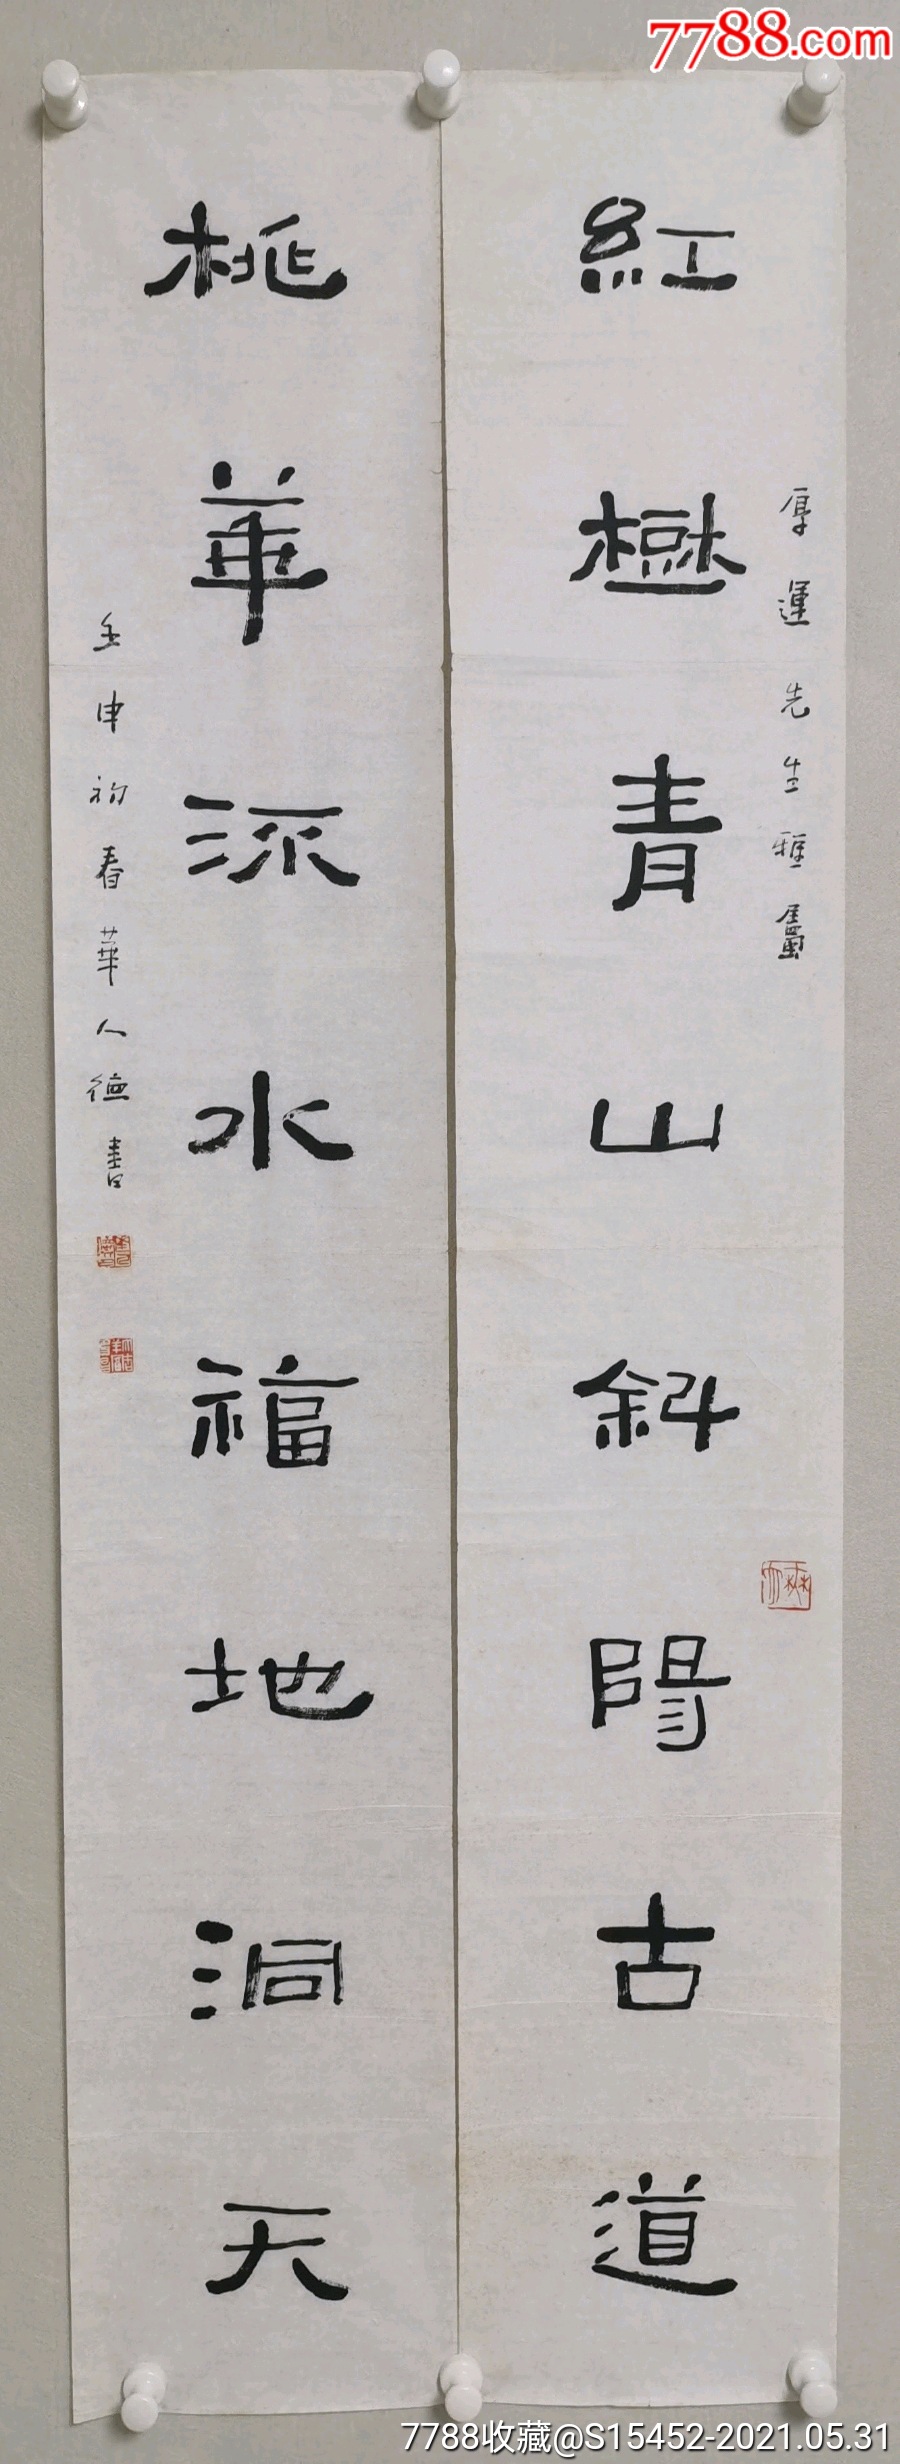 7788.com
厚運先生雅屬
紅樹青山斜陽古道
桃華流水福地洞天
壬申初春華人德書
7788收藏@S15452-2021.05.31